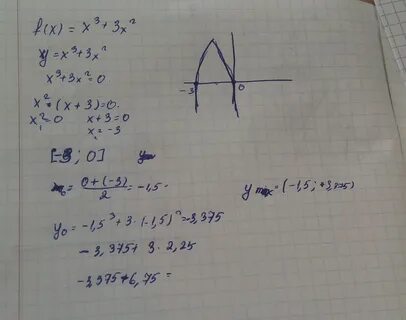 f(x) = x³ + 3x²
y = x³ + 3x²
x³ + 3x² = 0
x² · (x + 3) = 0.
x² = 0   x + 3 = 0
x₁   x₂ = -3
-3   0
[-3 ; 0]
x₀ = 0 + (-3) / 2 = -1,5 -
y max = (-1,5 ; +3,375)
y₀ = -1,5³ + 3 · (-1,5)² = 3,375
- 3,375 + 3 · 2,25
-3,375 + 6,75 =